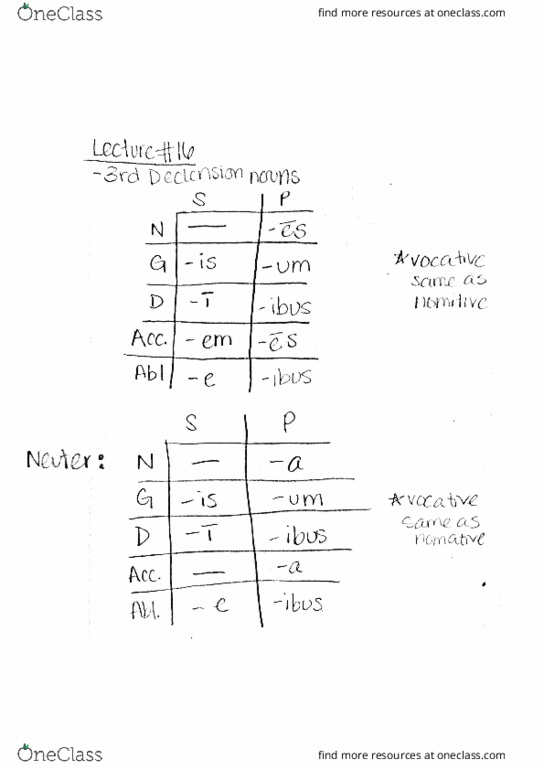 OneClass
find more resources at oneclass.com
Lecture #16
-3rd Declension nouns
S P
N — -ēs
G -is -um
D -ī -ibus
Acc. -em -ēs
Abl -e -ibus
*vocative
same as
nomitive
Neuter:
S P
N — -a
G -is -um
D -ī -ibus
Acc. — -a
Abl. -e -ibus
*vocative
same as
nomative
OneClass
find more resources at oneclass.com